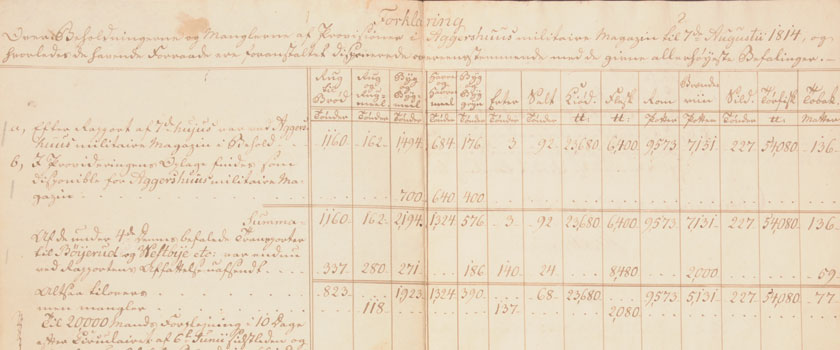 Forklaring
Over Beholdningerne og Manglerne af Provisioner i Aggershuus militaire Magazin til 7de Augustii 1814, og
hvorledes de havende Forraade ere foranstaltet disponerede overeensstemmende med de givne allerhøyeste Befalinger.
Rug til Brød Rug og Rugmeel Byg og Bygmeel Havre og Havremel Byg Gryn Erter Salt Kiød. Flesk Rom Brændeviin Sild. Tørfisk Tobak
Tønder Tønder Tønder Tønder Tønder Tønder Tønder ℔: ℔: Potter Potter Tønder ℔: Matter
a, Efter Rapport af 7de hujus var ved Aggers-
huus militaire Magazin i Behold 1160. 162. 1494. 684. 176. 3. 92. 23680. 6,400 9573 7131. 227. 54080. 136.
b, I Provideringens Oplage findes som
disponible for Aggershuus militaire Ma-
gazin 700. 640 400
Summa 1160. 162. 2194. 1324. 576. 3. 92. 23680. 6,400. 9573 7131. 227. 54080. 136.
Af de under 4de Dennes befalede Transporter
til Böijerud og Westbije etc: var endnu
ved Rapportens Affattelse uafsendt 337. 280. 271. 186 140. 24. 8,480 2000 59.
Altsaa tilovers 823. 1923. 1324. 390. 68. 23680. 9573 5131. 227. 54,080. 77.
men mangler 118. 137. 2080.
Til 20000 Mands Forplejning i 10 Dage
efter Circulairet af 6te Junii sidstleden og